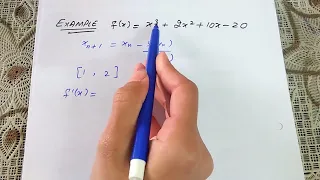 EXAMPLE f(x) = x³ + 2x² + 10x - 20
xₙ₊₁ = xₙ -
[1 , 2]
f'(x) =